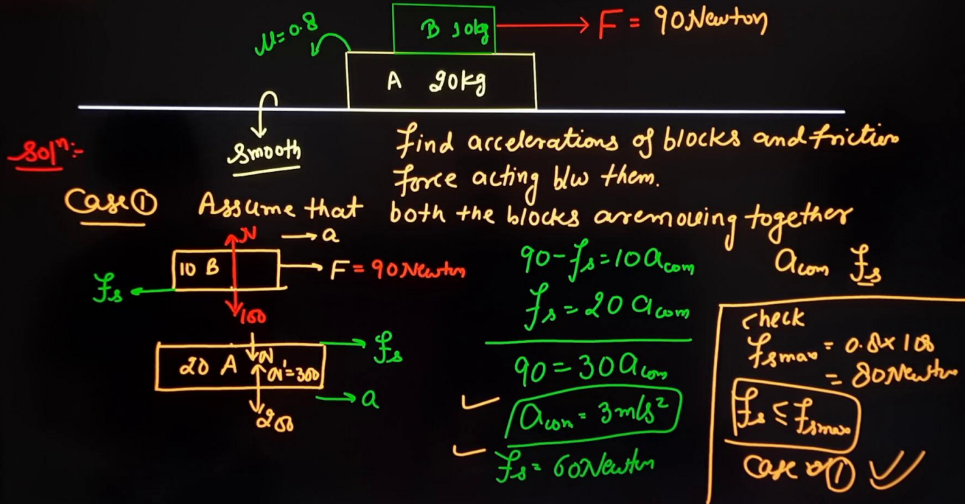 B 10kg
F = 90 Newton
μ=0.8
A 20kg
Smooth
Soln:-
find accelerations of blocks and friction
force acting b/w them.
Case ① Assume that both the blocks are moving together
N
a
10 B
F = 90 Newton
fs
100
20 A
N
N'=300
fs
a
200
90-fs=10acom
fs=20 acom
90=30acom
acom = 3m/s²
fs= 60Newton
acom fs
check
fsmax = 0.8x100
= 80Newton
fs ≤ fsmax
Case ①